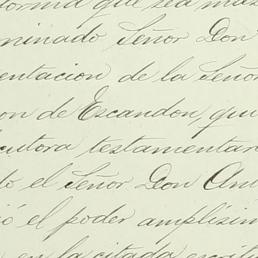 forma que sea mas
minado Señor Don
entacion de la Señor
on de Escandon, que
cutora testamentar
to el Señor Don An
ió el poder amplísim
en la citada escritu